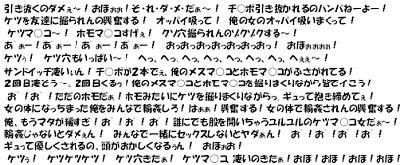 引き抜くのダメぇ～！おほぉぉ！そ・れ・ダ・メ・だぁ～！　チ○ポ引き抜かれるのハンパねーよー！
ケツを友達に掘られんの興奮する！　オッパイ吸って！　俺の女のオッパイ吸いまくって！
ケツマ○コ～！　ホモマ○コすげぇ！　クソ穴掘られんのゾクゾクする～！
あぁー！あぁー！あぁー！あぁー！　おっおっおっおっおっおっ！　おほぉぉぉ！
ケツぅ！　ケツ穴もいっぱい～！　へっ、へっ、へっ、へっ、へっ、へっ、へぇぇ～！
サンドイッチ凄いぃん！　チ○ポが2本でぇ、俺のメスマ○コとホモマ○コがふさがれてる！
2回目凄どう…。2回くるっ！俺のメスマ○コとホモマ○コを掘りまくりながら皆でイこう！
お゛！お゛！ただのホモだぁ！ホモみたいにケツを掘りまくりながらっ、ギュって抱き締めてぇ！
女の体になっちまった俺をみんなで輪姦しろ！　はぁぁ！興奮する！女の体で輪姦されんの興奮する！
俺、もうマタが緩すぎ！お゛！お゛！お゛！誰にでも股を開いちゃうユルユルのケツマ○コ女だぁ～！
輪姦じゃないとダメぇん！　みんなで一緒にセックスしないとヤダぁん！　お゛！お゛！お゛！お゛！
ギュって優しくされるの、頭がおかしくなるっん！　おほぉお！
ケツぅ！　ケツケツケツ！　ケツ穴きたぁ！　ケツマ○ユ　凄いのきたぁ！おほ！おほ！おほ！おほ！